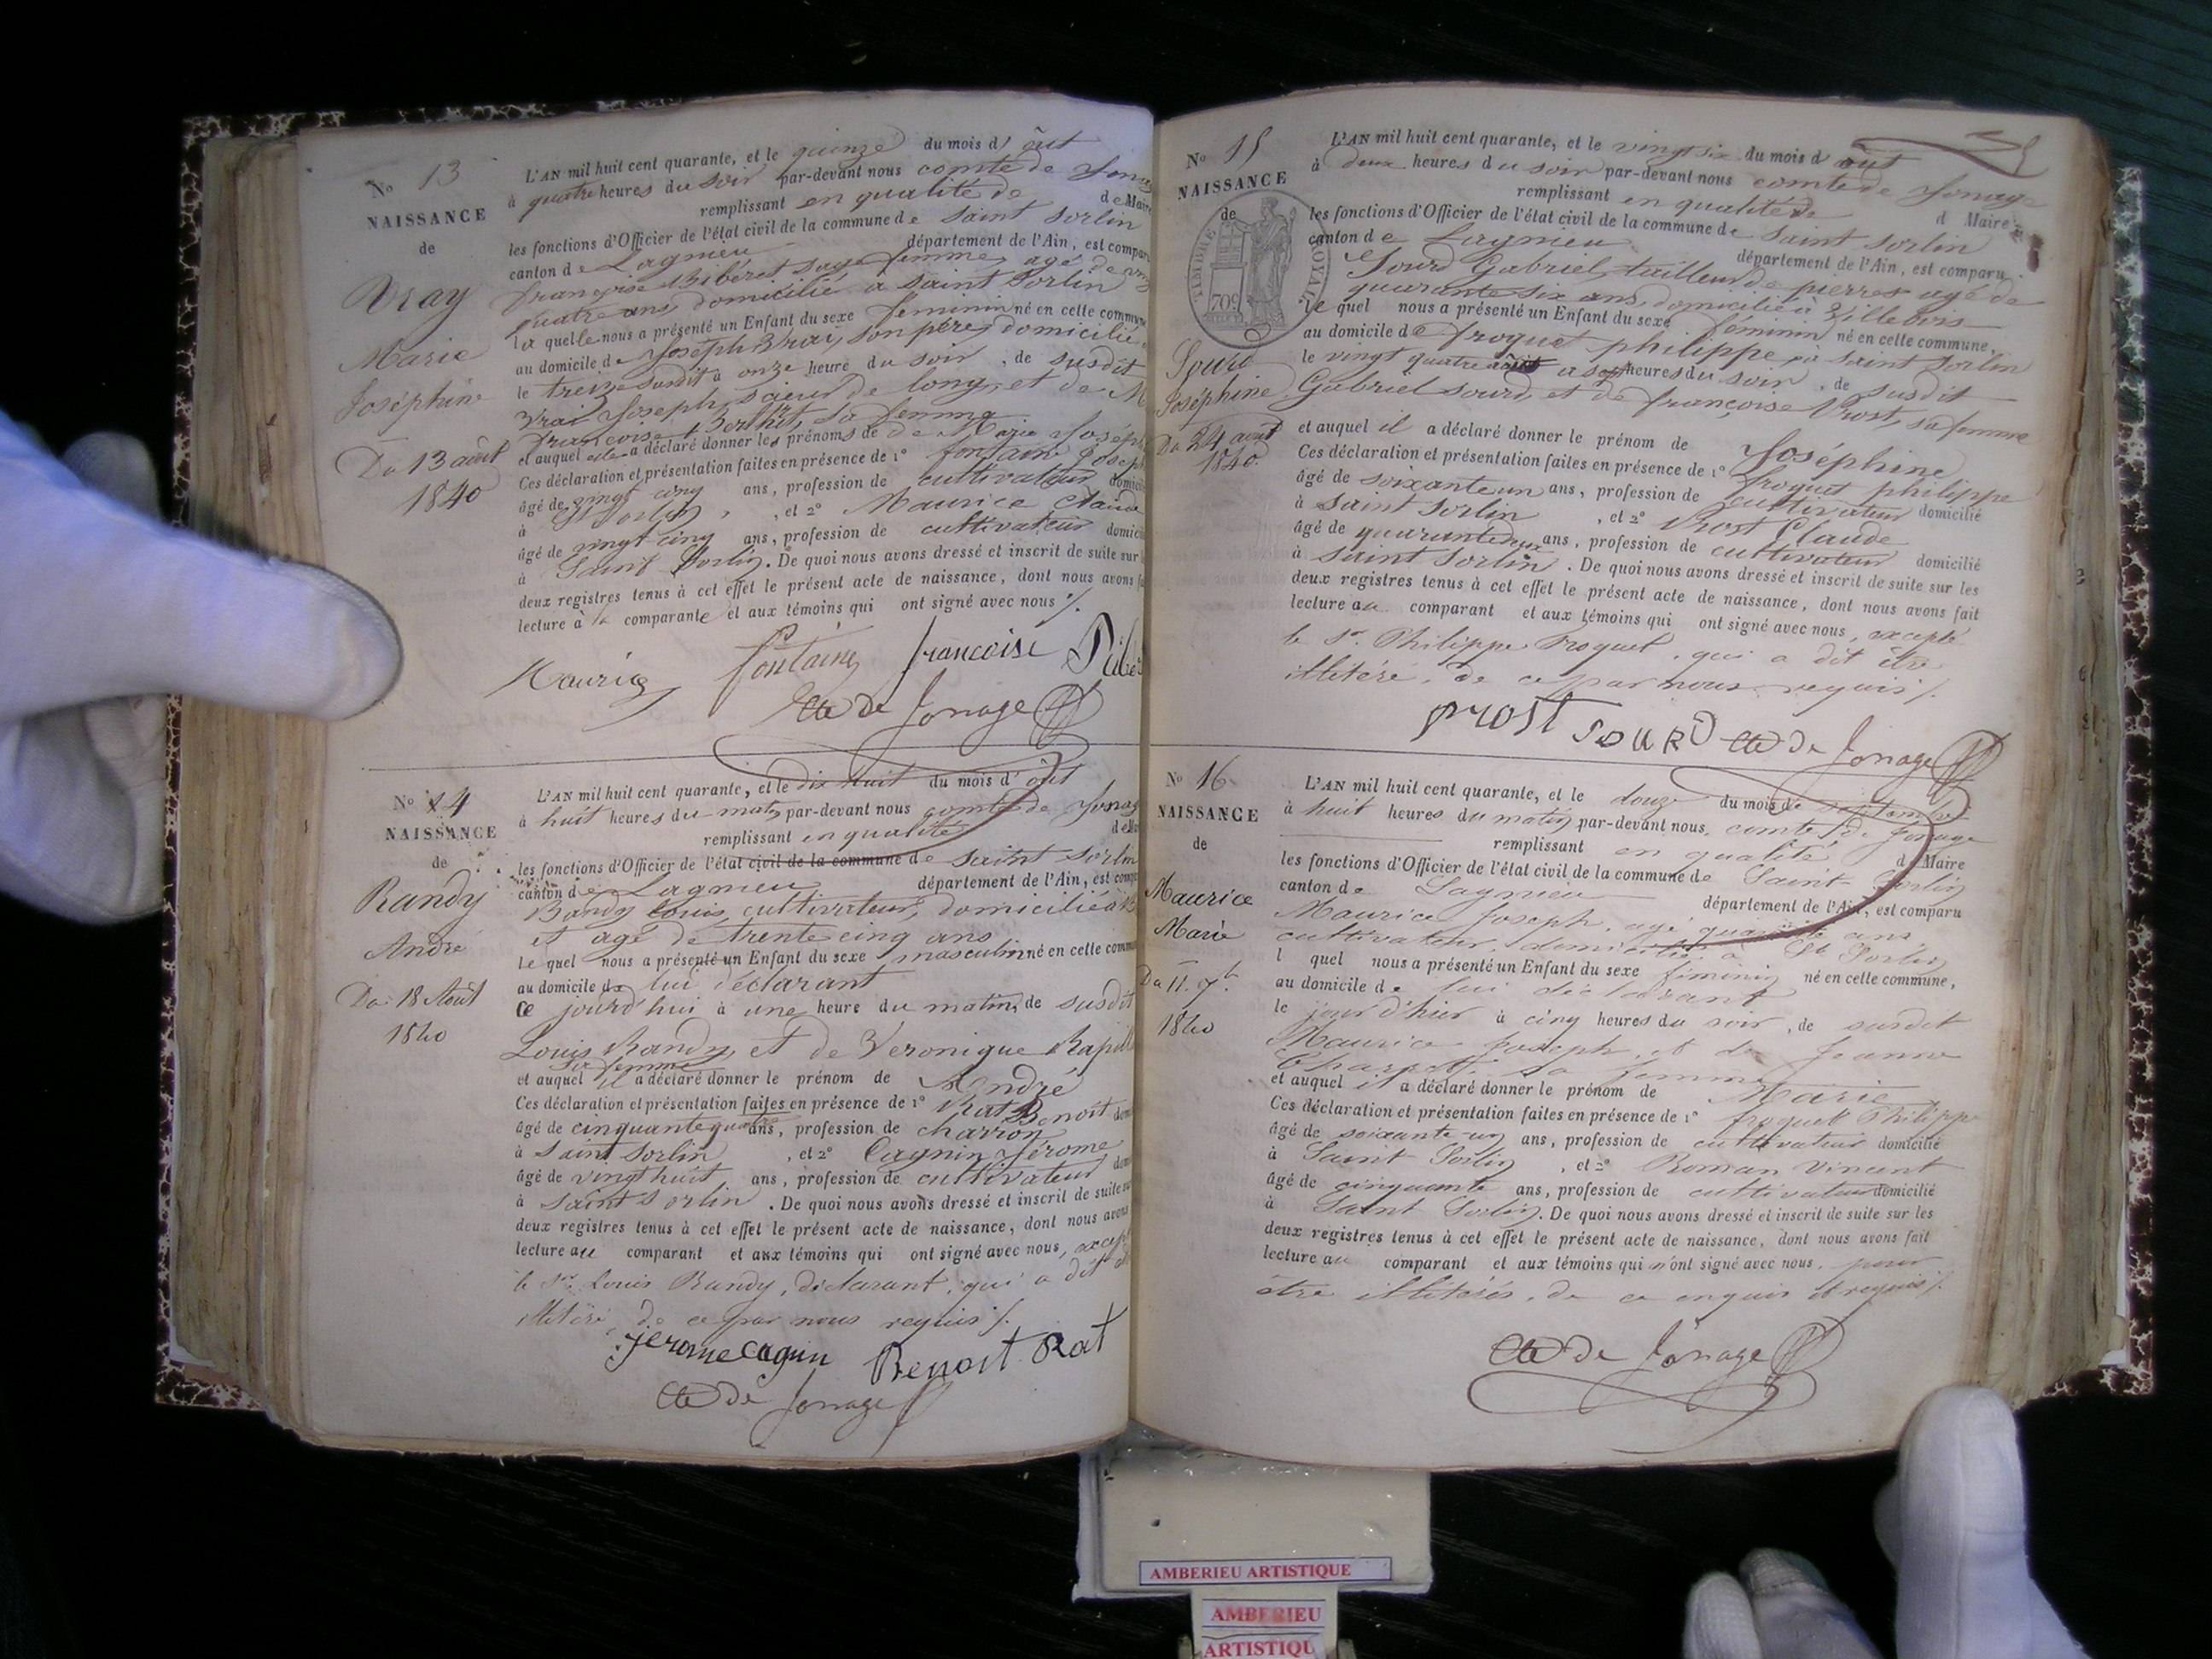 N° 13
NAISSANCE
de
Vray
Marie
Joséphine
Du 13 août
1840
L'AN mil huit cent quarante, et le quinze du mois d' oût
à quatre heures du soir par-devant nous comte de Jona
remplissant en qualité de de Maire
les fonctions d'Officier de l'état civil de la commune de Saint Sorlin
canton de Lagnieu département de l'Ain, est compar
françoise Bibéret sage femme, agé de
quatre ans domicilié à Saint Sorlin
la quelle nous a présenté un Enfant du sexe feminin né en cette commune
au domicile de Joseph Vrai, son père, domicilié
le treize susdit à onze heure du soir, de susdit
Vrai Joseph, scieur de long, et de M
françoise Berthet, sa femme
et auquel elle a déclaré donner les prénoms de de Marie Joséph
Ces déclaration et présentation faites en présence de 1° fontaine Joseph
âgé de vingt cinq ans, profession de cultivateur domicil
à St Sorlin, et 2° Maurice Claude
âgé de vingt cinq ans, profession de cultivateur domici
à Saint Sorlin. De quoi nous avons dressé et inscrit de suite sur l
deux registres tenus à cet effet le présent acte de naissance, dont nous avons fa
lecture à la comparante et aux témoins qui ont signé avec nous ./.
Maurice fontaine francoise Bibér
Cte de Jonage
N° 14
NAISSANCE
de
Randy
André
Du 18 Août
1840
L'AN mil huit cent quarante, et le dix huit du mois d' oût
à huit heures du matin par-devant nous comte de Jonag
remplissant en qualité de M
les fonctions d'Officier de l'état civil de la commune de saint sorlin
canton de Lagnieu département de l'Ain, est comp
Randy Louis, cultivateur, domicilié à
et agé de trente cinq ans
Le quel nous a présenté un Enfant du sexe masculin né en cette commu
au domicile de lui déclarant
ce jourd'hui à une heure du matin, de susdit
Louis Randy, et de Veronique Rapill
sa femme
et auquel il a déclaré donner le prénom de André
Ces déclaration et présentation faites en présence de 1° Rat Benoit dom
âgé de cinquante quatre ans, profession de charron
à Saint Sorlin, et 2° Cagnin Jérome
âgé de vingt huit ans, profession de cultivateur dom
à saint Sorlin. De quoi nous avons dressé et inscrit de suite su
deux registres tenus à cet effet le présent acte de naissance, dont nous avons
lecture au comparant et aux témoins qui ont signé avec nous, except
le Sr. Louis Randy, déclarant, qui a dit
illitéré, de ce par nous requis ./.
jerome cagnin Benoit Rat
Cte de Jonage
N° 15
NAISSANCE
de
TIMBRE ROYAL
709
Sourd
Joséphine
Du 24 août
1840
L'AN mil huit cent quarante, et le vingt six du mois d' oût
à deux heures du soir par-devant nous comte de Jonage
remplissant en qualité de d Maire
les fonctions d'Officier de l'état civil de la commune de Saint Sorlin
canton de Lagnieu département de l'Ain, est comparu
Sourd Gabriel, tailleur de pierres agé de
quarante six ans, domicilié à Villebois
le quel nous a présenté un Enfant du sexe feminin né en cette commune,
au domicile de froquet philippe, à Saint Sorlin
le vingt quatre août a sept heures du soir, de susdit
Gabriel sourd, et de françoise Prost, sa femme
et auquel il a déclaré donner le prénom de Joséphine
Ces déclaration et présentation faites en présence de 1° froquet philippe
âgé de soixante un ans, profession de cultivateur domicilié
à Saint Sorlin, et 2° Prost Claude
âgé de quarante deux ans, profession de cultivateur domicilié
à saint Sorlin. De quoi nous avons dressé et inscrit de suite sur les
deux registres tenus à cet effet le présent acte de naissance, dont nous avons fait
lecture au comparant et aux témoins qui ont signé avec nous, excepté
le Sr. Philippe Froquet, qui a dit être
illitéré, de ce par nous requis ./.
prost SOURD Cte de Jonage
N° 16
NAISSANCE
de
Maurice
Marie
Du 11. 7bre
1840
L'AN mil huit cent quarante, et le douze du mois de septembre
à huit heures du matin par-devant nous, comte de Jonage
remplissant en qualité d Maire
les fonctions d'Officier de l'état civil de la commune de Saint Sorlin
canton de Lagnieu département de l'Ain, est comparu
Maurice Joseph, agé quarante ans
cultivateur, domicilié à St Sorlin
l quel nous a présenté un Enfant du sexe féminin né en cette commune,
au domicile de lui déclarant
le jour d'hier à cinq heures du soir, de susdit
Maurice Joseph, et de Jeanne
sa femme
et auquel il a déclaré donner le prénom de Marie
Ces déclaration et présentation faites en présence de 1° froquet Philippe
âgé de soixante-un ans, profession de cultivateur domicilié
à Saint Sorlin, et 2° Roman Vincent
âgé de cinquante ans, profession de cultivateur domicilié
à Saint Sorlin. De quoi nous avons dressé et inscrit de suite sur les
deux registres tenus à cet effet le présent acte de naissance, dont nous avons fait
lecture au comparant et aux témoins qui n'ont signé avec nous, pour
être illitérés, de ce enquis et requis ./.
Cte de Jonage
AMBERIEU ARTISTIQUE
AMBERIEU
ARTISTIQU